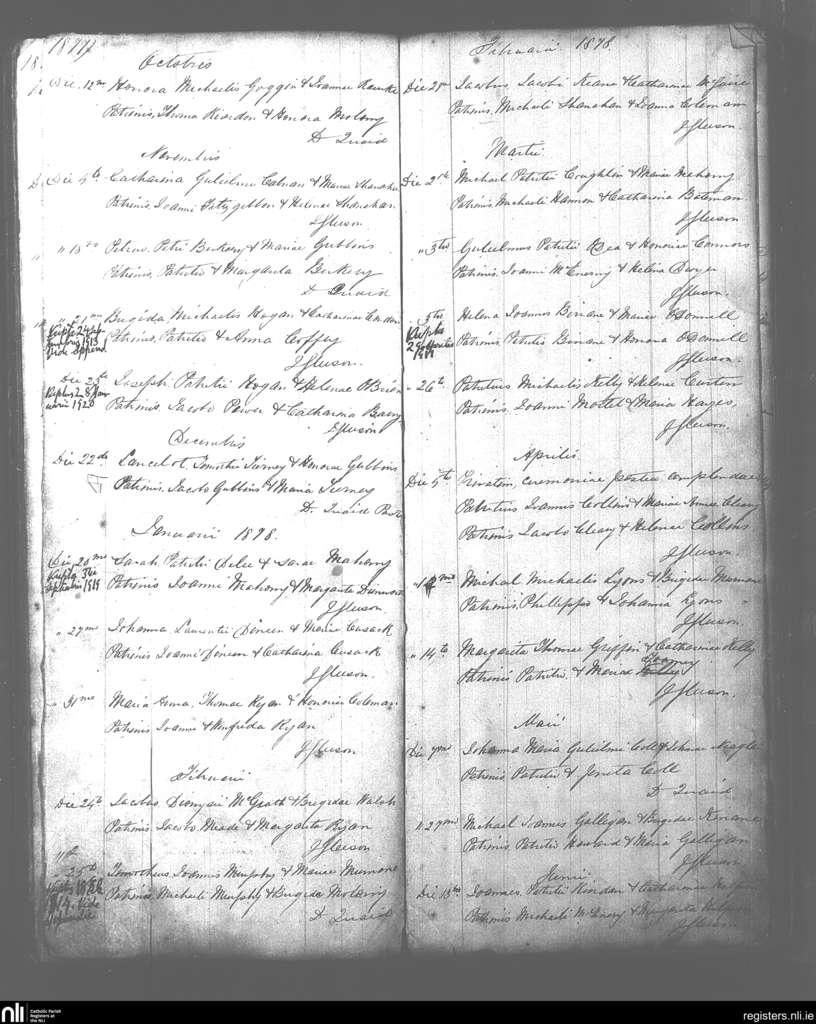 1877
Octobris
Die 12a Honora Michaelis Goggin & Joannae Rourke
Patrinis, Thoma Reardon & Honora Molony
D Quaid
Novembris
Die 4ta Catharina Gulielmi Colman & Mariae Shanahan
Patrinis, Joanni Fitzgibbon & Helena Shanahan
J Gleeson
" 18va Petrus Petri Berkery & Mariae Gubbins
Patrinis, Patritio & Margarita Berkery
D Quaid
" 21ma Brigida Michaelis Hogan & Catharinae Condon
Patrinis, Patritio & Anna Coffey
J Gleeson.
Nupta 24
1913
Vide Append
Die 25ta Joseph Patritii Hogan & Helenae O'Brien
Patrinis, Jacobo Power & Catharina Barry
J Gleeson
Nuptus 28 Jan
uarii 1920
Decembris
Die 22da Lancelot Timothei Tierney & Honorae Gubbins
Patrinis, Jacobo Gubbins & Maria Tierney
D. Quaid
Januarii 1878.
Die 20ma Sarah Patritii & Sarae Mahony
Patrinis Joanni Mahony & Margarita
J Gleeson
Nupta
1919
" 27ma Johanna Laurentii Dineen & Mariae Cusack
Patrinis Joanni Dineen & Catharina Cusack
J Gleeson.
31ma Maria Anna, Thomae Ryan & Honorae Coleman
Patrinis Joanni & Winifrida Ryan
J Gleeson
Februarii
Die 24ta Jacobus Dionysii McGrath & Brigidae Walsh
Patrinis Jacobo Meade & Margarita Ryan
J Gleeson
" 25ta Timotheus Joannis Murphy & Mariae
Patrinis Michaeli Murphy & Brigida Molony
D Quaid
Vide
Februarii 1878.
Die 28va Jacobus Jacobi Keane & Catharinae McGuire
Patrinis, Michaeli Shanahan & Joanna Coleman
J Gleeson.
Martii
Die 2da Michael Patritii Coughlin & Mariae Meehany
Patrinis Michaeli Hannon & Catharina Bateman.
J Gleeson
" 3tia Gulielmus Patritii Rea & Honorae Connors
Patrinis. Joanni McEnerny & Helena Dwyer
J Gleeson.
5ta Helena Joannis Binane & Mariae O'Donnell
Patrinis Patritio Binane & Honora O'Donnell
J Gleeson.
Nupta
26ta Patritius Michaelis Kelly & Helenae Curtin
Patrinis. Joanni Mottel & Maria Hayes.
J Gleeson.
Aprilis
Die 5ta Privatim, ceremoniae postea complendae
Patritius Joannis Collins & Mariae Annae Cleary
Patrinis Jacobo Cleary & Helenae Collins
J Gleeson.
Michael Michaelis Lyons & Brigidae
Patrinis Philippo & Johanna Lyons
J Gleeson.
" 14ta Margarita Thomae Griffin & Catharinae Kelly
Patrinis Patritio & Maria
J Gleeson.
Maii
Die 7ma Johanna Maria Gulielmi Coll & Johannae Neagle
Patrinis Patritio & Coll
D Quaid
" 27ma Michael Joannis Galligan & Brigidae Kinane
Patrinis Patritio Howard & Maria Galligan
J Gleeson
Junii
Die 13tia Joannes Patritii Riordan & Catharinae
Patrinis Michaeli & Margarita
J Gleeson
nli
Catholic Parish
Registers at
the NLI
registers.nli.ie